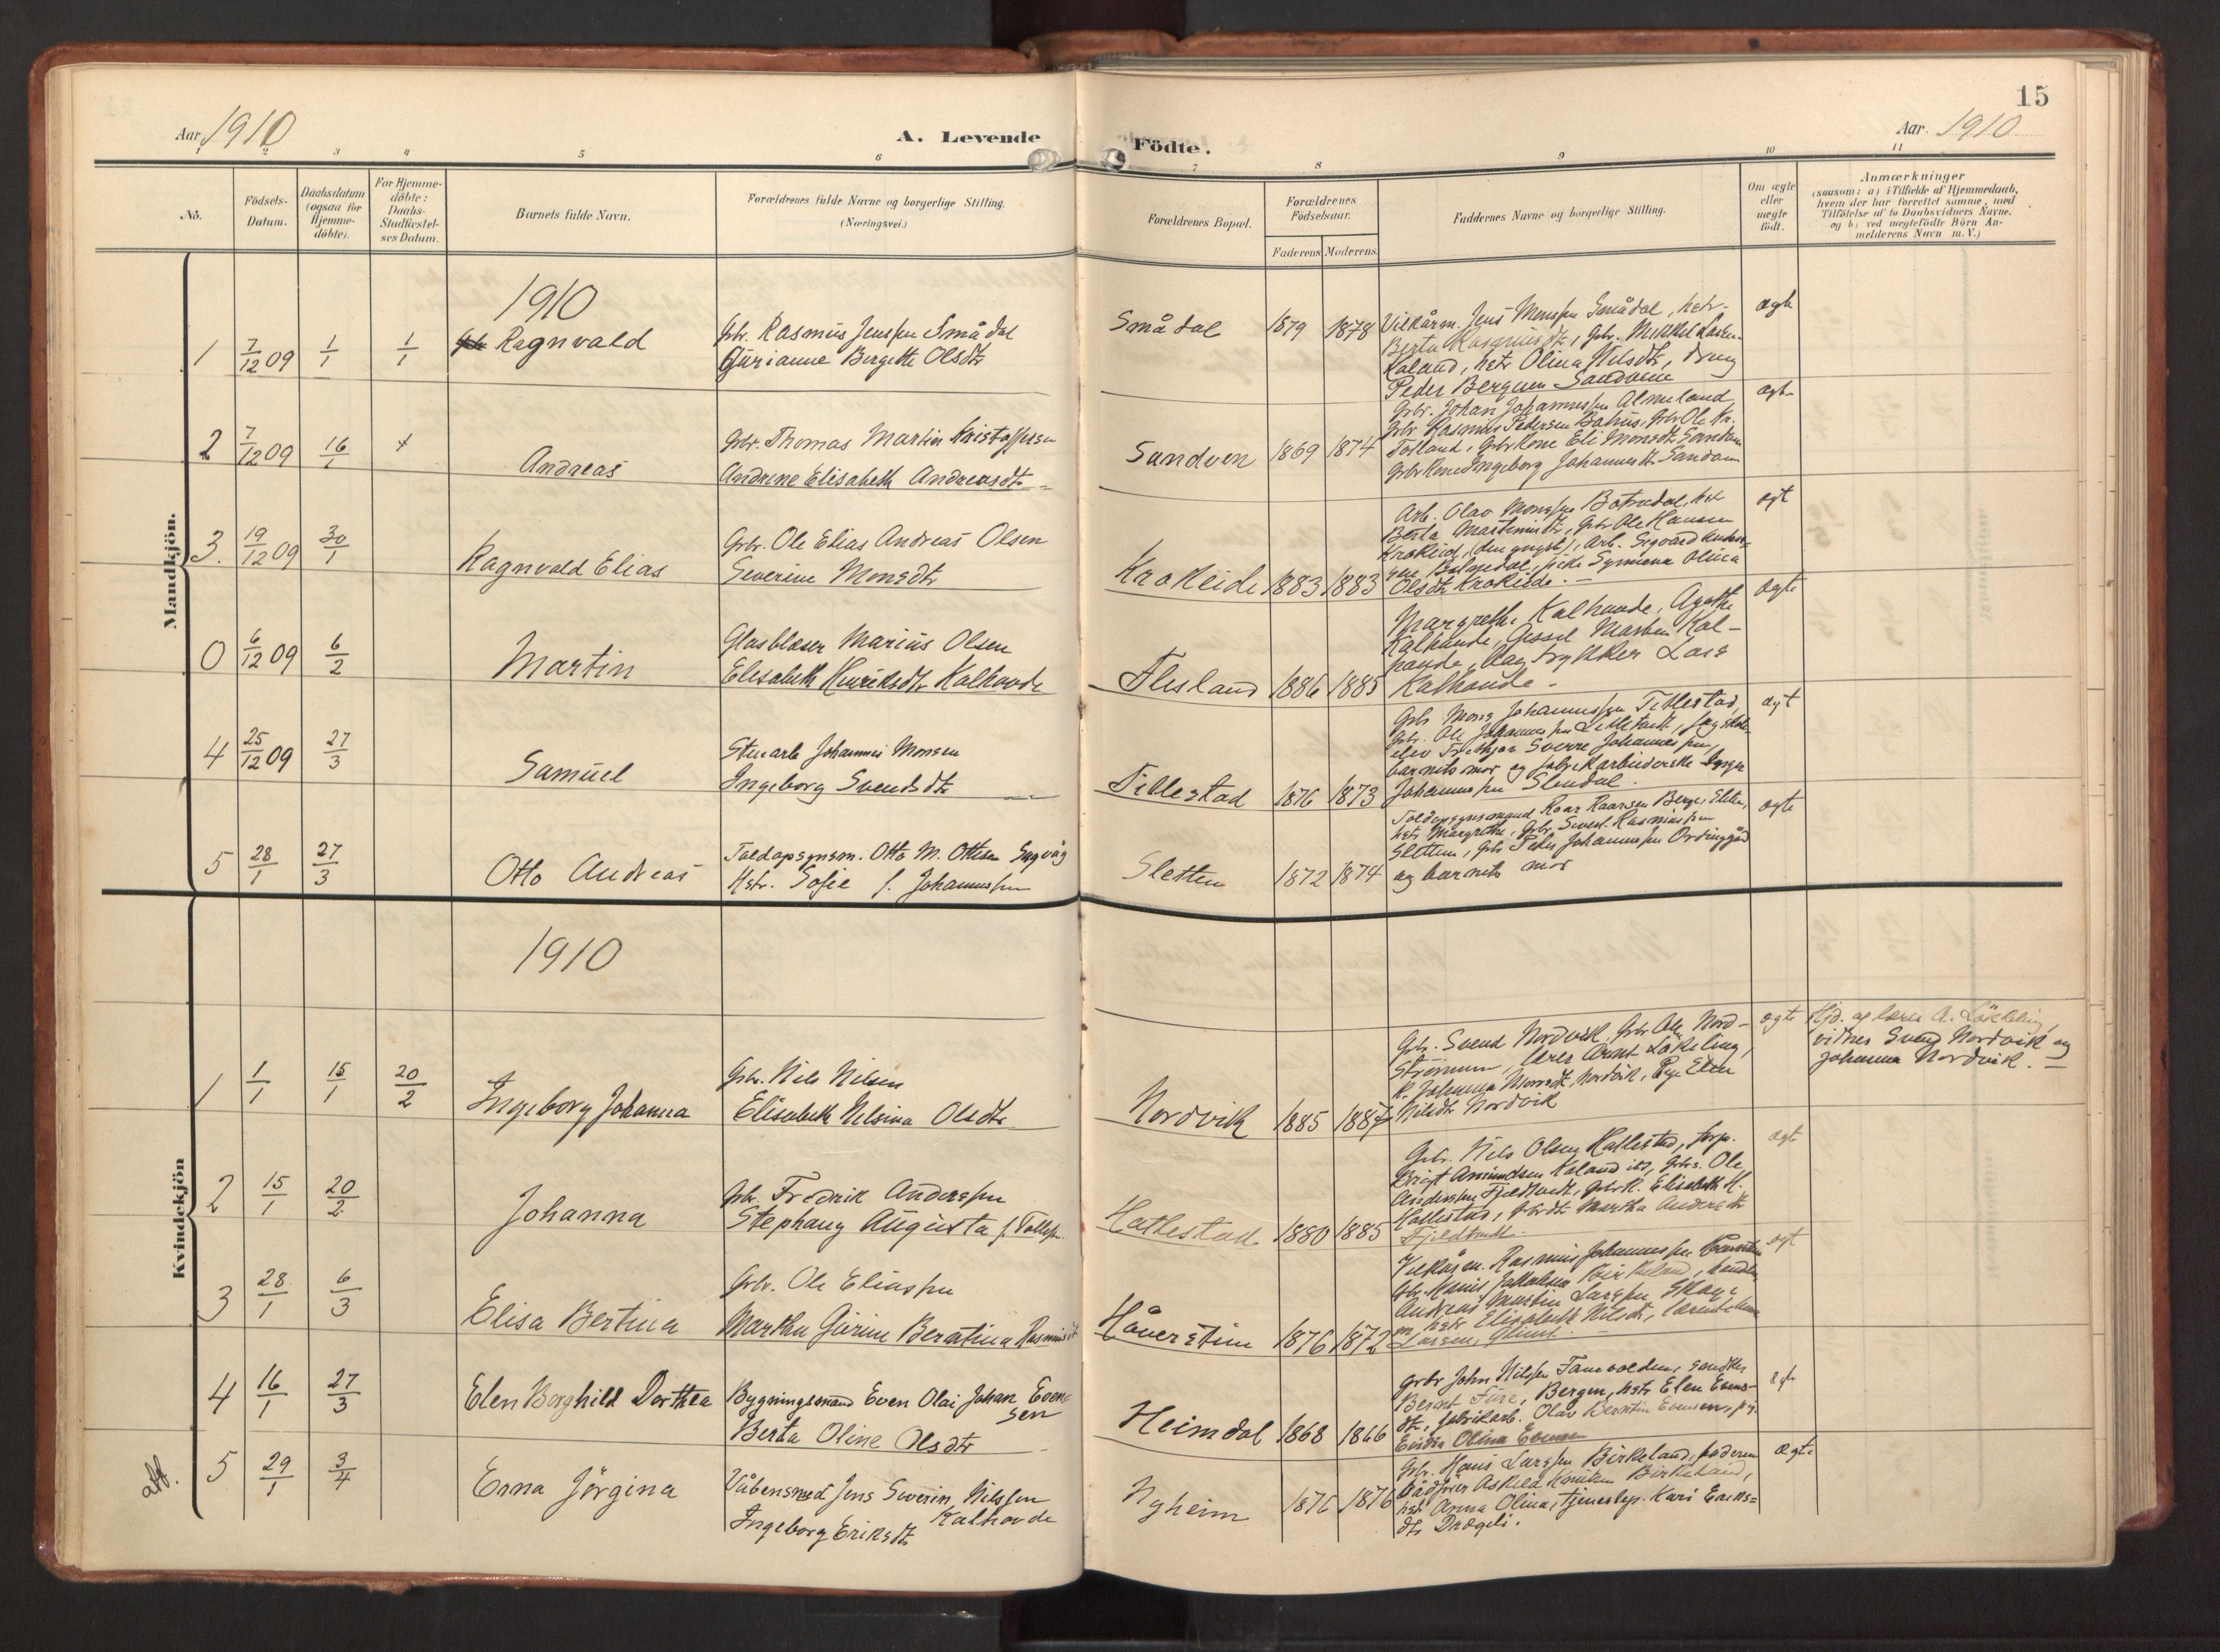 15
Aar 1910
A. Levende
Födte.
Aar. 1910
1 2 3 4 5 6 7 8 9 10 11
No.
Födsels-
Datum.
Daabsdatum
(ogsaa for
Hjemme-
döbte).
For Hjemme-
döbte:
Daabs-
Stadfæstel-
ses Datum.
Barnets fulde Navn.
Forældrenes fulde Navne og borgerlige Stilling.
(Næringsvei.)
Forældrenes Bopæl.
Forældrenes
Födselsaar.
Faderens Moderens.
Faddernes Navne og borgerlige Stilling.
Om ægte
eller
uægte
födt.
Anmærkninger
(saasom: a) i Tilfælde af Hjemmedaab,
hvem der har forrettet samme, med
Tilföielse af to Daabsvidners Navne.
og b) ved uægtefödte Börn An-
melderens Navn m. V.)
Mandkjön.
1910
1 7/12 09 1/1 1/1 Ragnvald
Gbr. Rasmus Jenssen Smådal
Gurianne Bergitte Olsdtr
Smådal 1879 1878
Vilkårm. Jens Monssen Smådal, hstr.
Berta Rasmusdtr, Gbr. Mikkel Lassen
Kaland, hstr Olina Nilsdtr, dreng
Peder Berguen Sandven
ægte
2 7/12 09 16/1 + Andreas
Gbr. Thomas Martin Kristoffersen
Andrine Elisabeth Andreasdtr
Sandven 1869 1874
Gbr. Johan Johannessen Almeland
Gbr Rasmus Pedersen Bahus, Gbr Ole Kr.
Totland, Gbr Kone Eli Monsdtr Sandven
Gbr Kone Ingeborg Johannesdtr Sandven
ægte
3. 19/12 09 30/1 Ragnvald Elias
Gbr. Ole Elias Andreas Olsen
Severine Monsdtr
Krokeide 1883 1883
Arb. Olav Monssen Botnedal, hstr
Berta Martinusdtr, Gbr Ole Hansen
Krokeide, (den yngste), Arb. Sigvard
Botnedal, pike Synneva Olina
Olsdtr Krokeide.
ægt
0 6/12 09 6/2 Martin
Glasblaser Marius Olsen
Elisabeth Henriksdtr Kalhovde
Flesland 1886 1885
Margrethe Kalhovde, Agathe
Kalhovde, Gessel Martin Kal-
hovde, Bagtrykker Lars
Kalhovde
ægte
4 25/12 09 27/3 Samuel
Stenarb Johannes Monsen
Ingeborg Svendsdtr
Tillestad 1876 1873
Gbr Mons Johannessen Tillestad,
Gbr. Ole Johannessen Tillestad,
elev Fridthjov Sverre Johannessen,
barnets mor og fabrikarbeiderske Inger
Johannessen Slendal.
ægt
5 28/1 27/3 Otto Andreas
Toldopsynsm. Otto M. Ottesen Sagvåg
Hstr. Sofie f. Johannessen
Sletten 1872 1874
Toldopsynsmand Roar Roarsen Berge, Sletten,
hstr Margrethe, Gbr. Sivert Rasmussen
Sletten, Gbr Peder Johannessen
og barnets mor
ægte
Kvindekjön
1910
1 1/1 15/1 20/2 Ingeborg Johanna
Gbr. Nils Nilsen
Elisabeth Nilsina Olsdtr
Nordvik 1885 1887
Gbr. Svend Nordvik, Gbr Ole Nord-
Strömmen, lærer Arnt Lökeling,
K. Johanna Monsdtr Nordvik, Pige Elen
Nilsdtr Nordvik
ægte
Hjd. af lærer A. Lökeling,
vidner Svend Nordvik og
Johanna Nordvik.
2 15/1 20/2 Johanna
Gbr. Fredrik Anderssen
Stephany Augusta f. Tollefs.
Hatlestad 1880 1885
Gbr. Nils Olsen Hatlestad, forp.
Brigt Amundsen Kaland, Gbrs. Ole
Anderssen Fjeldtvedt, Gbr K. Elisabeth H.
Hatlestad, Gbr dtr Martha Andersdtr
Fjeldtvedt.
ægte
3 28/1 6/3 Elisa Bertina
Gbr. Ole Eliassen
Martha Gurine Berntina Rasmusdt
Håversten 1876 1872
Vilkårm. Rasmus Johannessen
Gbr. Hans Jakobsen Birkeland, handlm
Andreas Martin Larssen Skage
hstr Elisabeth Nilsdtr, lærerinde
Larsen,
ægt
4 16/1 27/3 Elen Borghild Dorthea
Bygningsmand Even Olai Johan Even-
sen
Berta Oline Olsdtr
Heimdal 1868 1866
Gbr John Nilssen Tamvolden, snedker
Bernt Füre, Bergen, hstr Elen Evens-
dtr, fabrikarb. Olav Berntin Evensen,
Olina Evensen
ægte
att.
5 29/1 3/4 Erna Jörgina
Våbensmed Jens Severin Nilssen
Kalhovde
Ingeborg Eriksdtr
Nyheim 1876 1876
Gbr. Hans Larssen Birkeland, faderen
Askild Knutsen Birkeland,
hstr Anna Olina, tjenestep. Kari Eriks-
dtr Drageli.
ægte